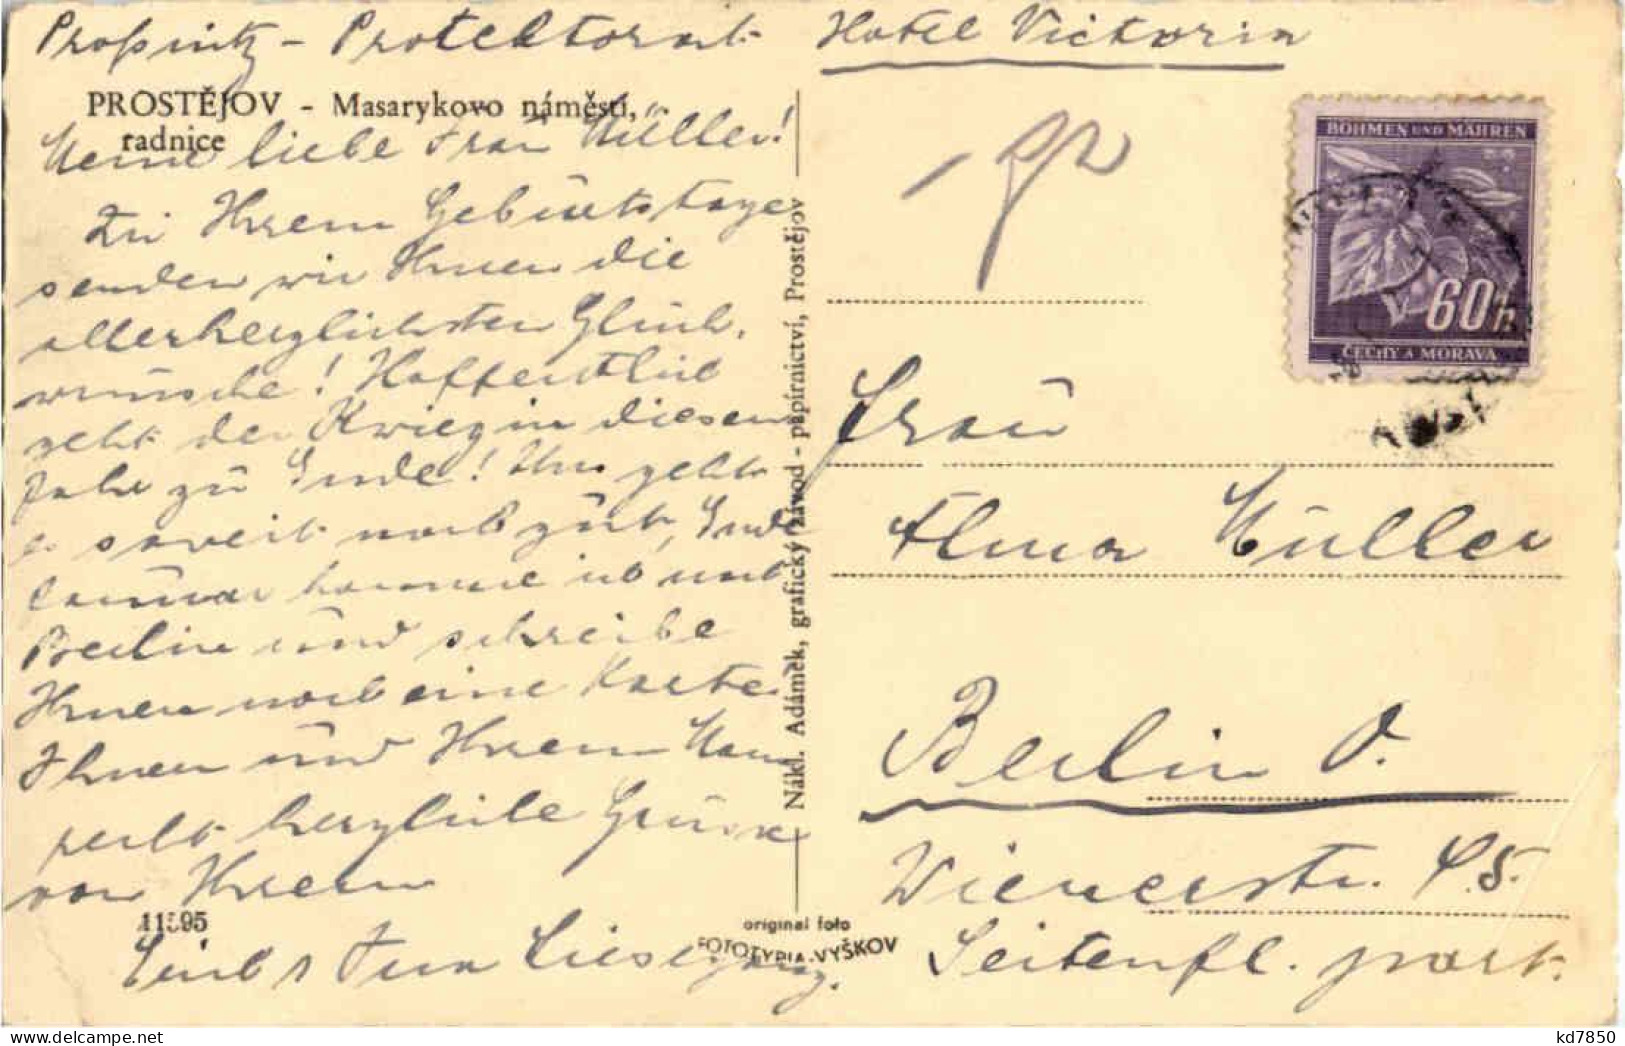 Proßnitz – Protektorat Hotel Victoria
PROSTĚJOV - Masarykovo náměstí,
radnice
Meine liebe Frau Müller!
Zu Ihrem Geburtstage
senden wir Ihnen die
allerherzlichsten Glück-
wünsche! Hoffentlich
geht der Krieg in diesem
Jahr zu Ende! Uns geht
es soweit noch gut, Ende
Januar komme ich nach
Berlin und schreibe
Ihnen noch eine Karte.
Ihnen und Ihrem Mann
recht herzliche Grüsse
von Ihrem
11595
Nákl. Adámek, grafický závod - papírnictví, Prostějov
original foto
FOTOTYPIA-VYŠKOV
BÖHMEN UND MÄHREN
60h
ČECHY A MORAVA
Frau
Alma Müller
Berlin O.
Wienerstr.
Seitenfl. part.